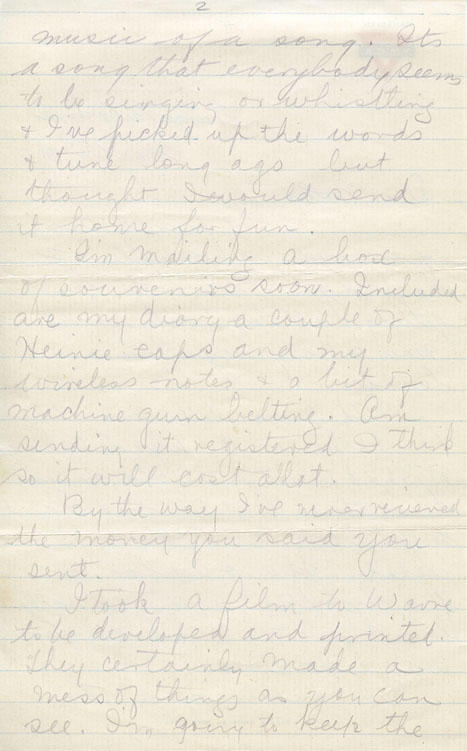 2
music of a song. Its
a song that everybody seems
to be singing or whistling
& I've picked up the words
& tune long ago but
thought I would send
it home for fun.
I'm mailing a box
of souvenirs soon. Included
are my diary a couple of
Heinie caps and my
wireless notes & a bit of
machine gun belting. Am
sending it registered I think
so it will cost allot.
By the way I've never received
the money you said you
sent.
I took a film to Wavre
to be developed and printed.
They certainly made a
mess of things as you can
see. I'm going to keep the